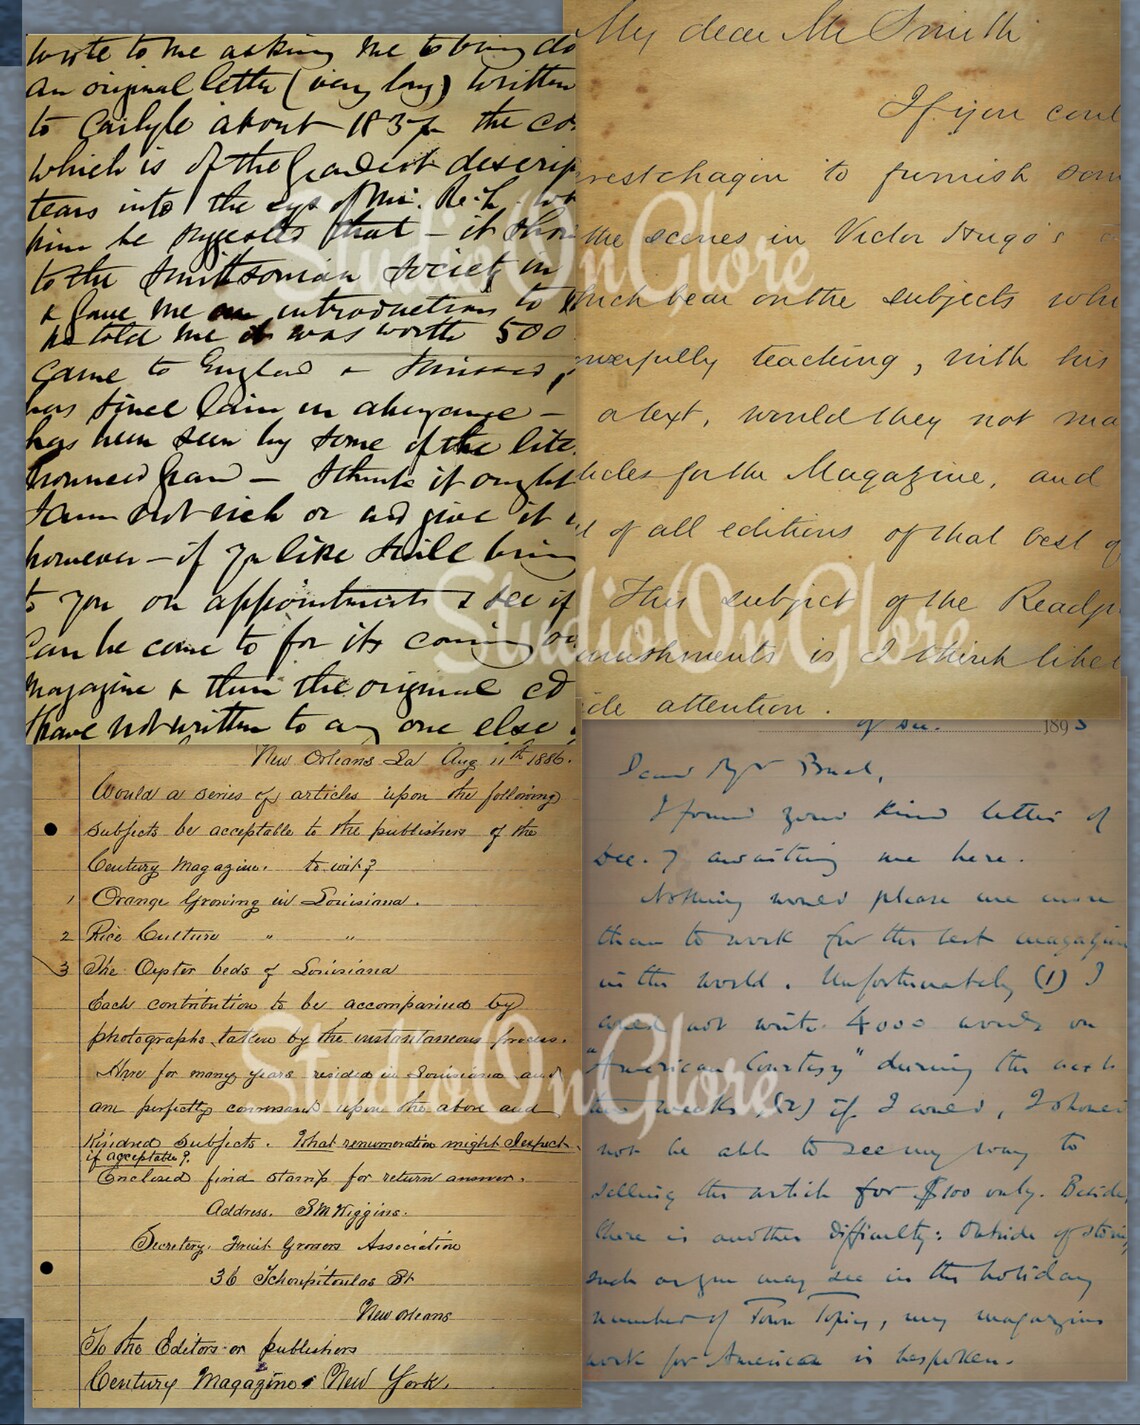 wrote to me asking me to bring do
an original letter (very long) written
to Carlyle about 183 the co
which is of the descrip
tears into the eye of Mr. wh
him he suggested that - it shou
to the Smithsonian Society in
& gave me an introduction to
he told me it was worth 500
came to England &
has since lain in abeyance -
has been seen by some of the lite
- I think it ought
I am not rich or and give it
however - if you like I will bring
to you on appointment & see if
can be come to for its coming
magazine & then the original
I have not written to any one else
My dear Mr Smith
If you coul
restchagin to furnish som
the scenes in Victor Hugo's
which bear on the subjects whi
owerfully teaching, with his
a text, would they not ma
ticles for the Magazine, and
of all editions of that best of
This subject of the Readj
unishments is I think likel
ide attention.
New Orleans La Aug 11th 1886.
Would a series of articles upon the following
subjects be acceptable to the publishers of the
Century Magazine. to wit?
1 Orange Growing in Louisiana.
2 Rice Culture " "
3 The Oyster beds of Louisiana
Each contribution to be accompanied by
photographs taken by the instantaneous process.
Have for many years resided in Louisiana and
am perfectly command upon the above and
kindred subjects. What renumeration might I expect
if acceptable?
Enclosed find stamp for return answer.
Address. S M Wiggins.
Secretary. Fruit Growers Association
36 Tchoupitoulas St
New Orleans
To the Editors or publishers
Century Magazine New York.
1893
Dear Mr Buel,
I found your kind letter of
Dec. 7 awaiting me here.
Nothing would please me more
than to work for the best magazine
in the world. Unfortunately (1) I
could not write 4000 words on
"American Courtesy" during the next
two weeks, (2) if I could, I should
not be able to see my way to
selling the article for $100 only. Beside,
there is another difficulty: Outside of stories,
such as you may see in the holiday
number of Town Topics, my magazine
work for America is bespoken.
StudioOnGlore
StudioOnGlore
StudioOnGlore